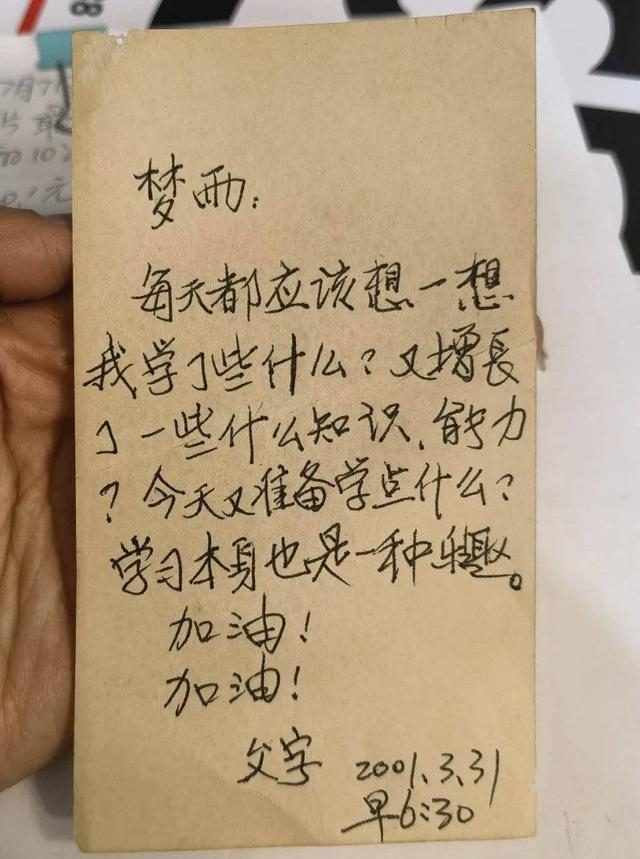 梦西:
每天都应该想一想
我学了些什么?又增長
了一些什么知识、能力
?今天又准备学点什么?
学习本身也是一种乐趣。
加油!
加油!
父字 2001.3.31
早6:30